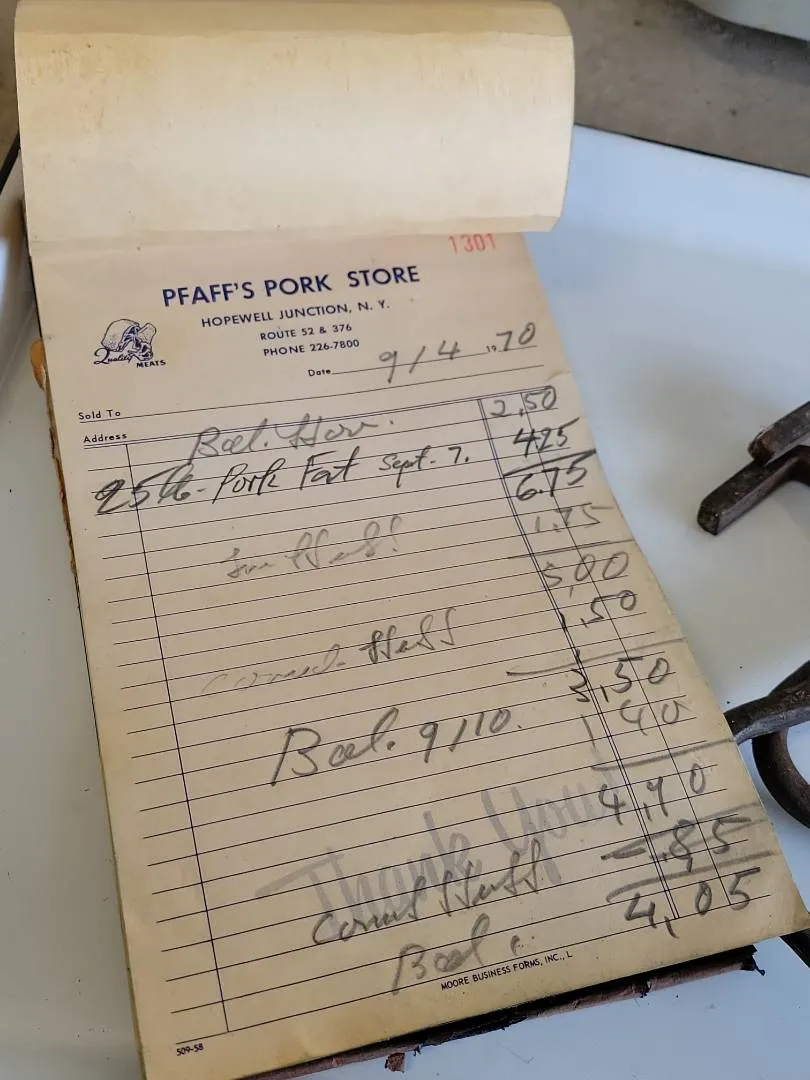 1301
PFAFF'S PORK STORE
HOPEWELL JUNCTION, N. Y.
ROUTE 52 & 376
PHONE 226-7800
Quality MEATS
Date 9/4 1970
Sold To
Address
Bal. 2,50
25 lb - Pork Fat Sept. 7. 425
6.75
1.75
5,00
1,50
3,50
Bal. 9/10. 1 40
4,90
-,85
4,05
Bal
Thank You!
MOORE BUSINESS FORMS, INC., L
509-58